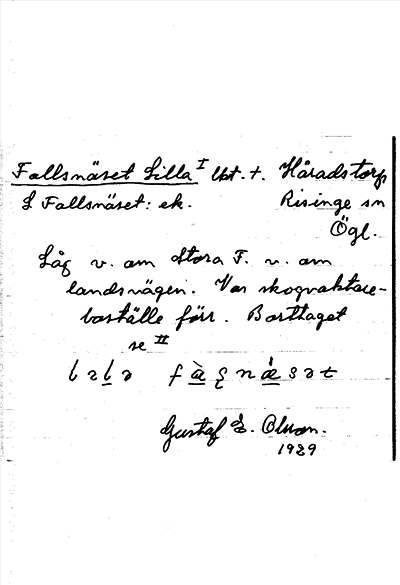 Fallsnäset Lilla I lht. t. Håradstorp
L Fallsnäset: ek. Risinge sn
Ögl.
Låg v. om Stora F. n. om
landsvägen. Var skogvaktare-
boställe förr. Borttaget
se II
Gustaf E. Olson.
1929